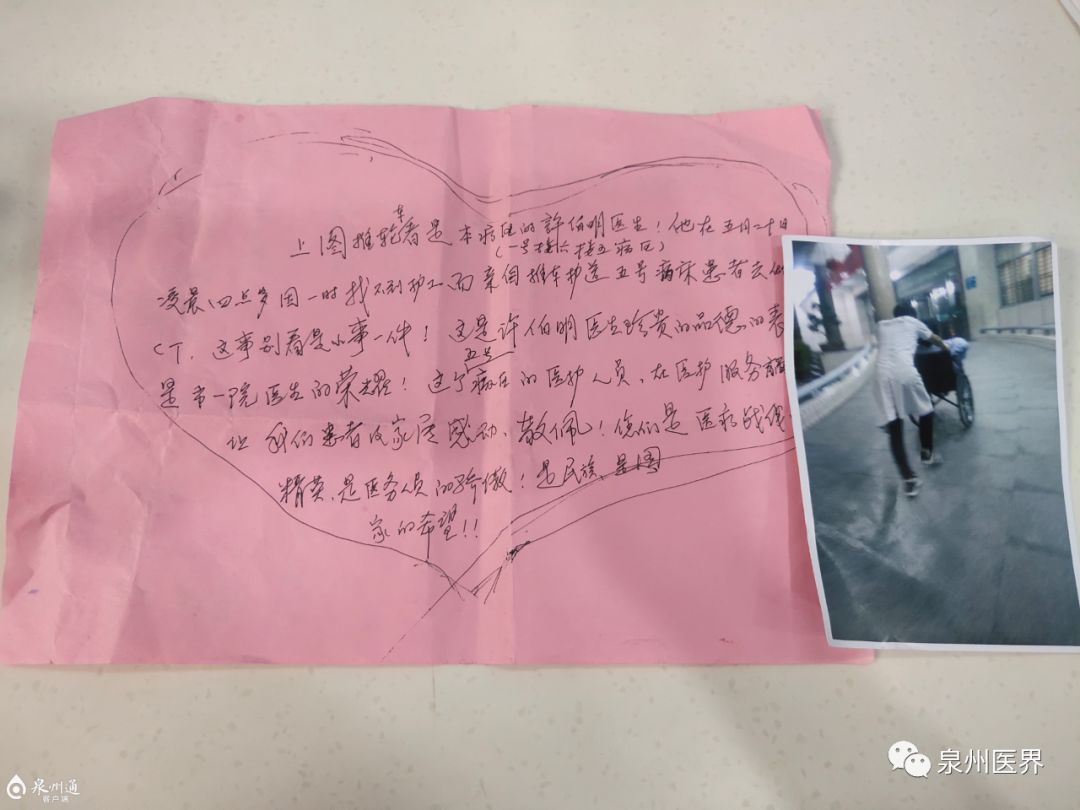 上图推轮车者是本病区的許伯明医生！他在五月二十日
(一号楼六楼五病区)
凌晨四点多因一时找不到护工而亲自推车护送五号病床患者去做
CT. 这事别看是小事一件！这是许伯明医生珍贵的品德的表
五号
是市一院医生的荣耀！这个病区的医护人员、在医护服务
让我们患者及家属感动、敬佩！您们是医疗战线
精英、是医务人员的骄傲！是民族、是国
家的希望!!
泉州通
客户端
泉州医界